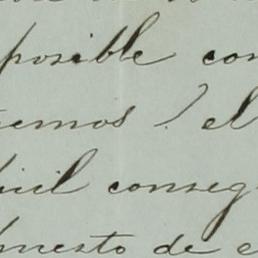 posible con
remos ? el
icil conseg
puesto de e